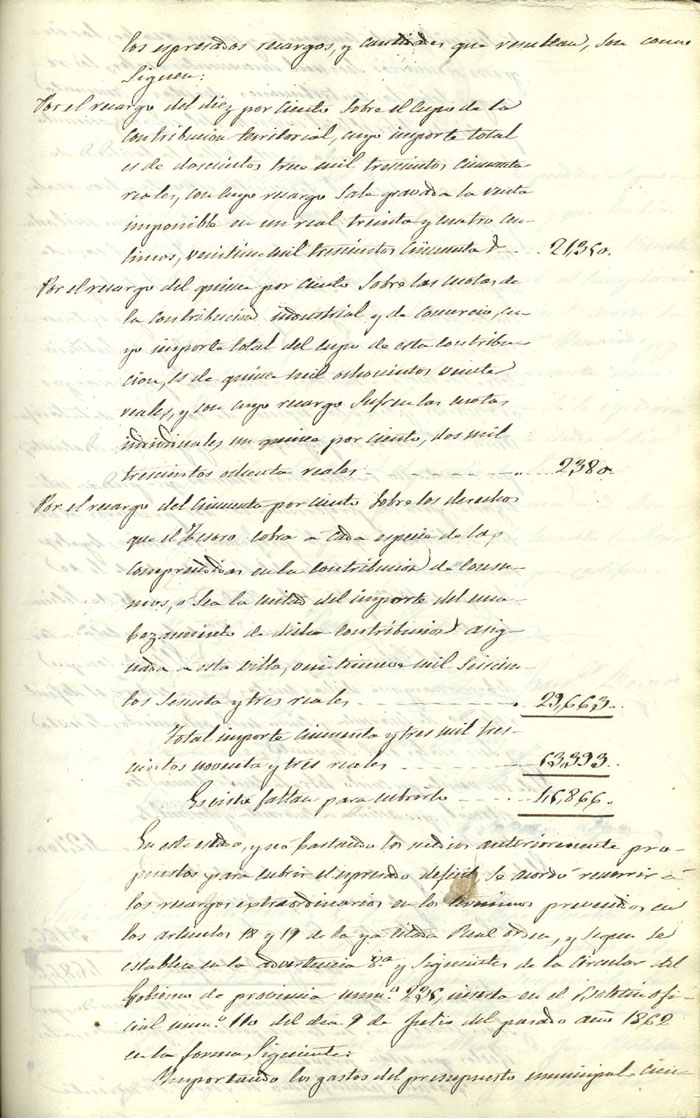 los espresados recargos, y cantidades que resultan, son como
siguen:
Por el recargo del diez por ciento sobre el cupo de la
contribucion territorial, cuyo importe total
es de doscientos trece mil trescientos cincuenta
reales, con cuyo recargo sale gravada la renta
imponible en un real treinta y cuatro cen-
timos, veintiun mil trescientos cincuenta 21,350.
Por el recargo del quince por ciento sobre las cuotas de
la contribucion industrial y de comercio, cu-
yo importe total del cupo de esta contribu-
cion, es de quince mil ochocientos veinte
reales, y con cuyo recargo sufren las cuotas
individuales un quince por ciento, dos mil
trescientos ochenta reales 2380.
Por el recargo del cincuenta por ciento sobre los derechos
que el Tesoro cobra a cada especie de las
comprendidas en la contribucion de consu-
mos, o sea la mitad del importe del enca-
bezamiento de dicha contribucion asig-
nada a esta villa, veintinueve mil seiscien-
tos sesenta y tres reales 29,663.
Total importe cincuenta y tres mil tres-
cientos noventa y tres reales 53,393.
Es visto faltan para cubrirlo
En este estado, y no bastando los medios anteriormente pro-
puestos para cubrir el espresado deficit, se acordó recurrir a
los recargos extraordinarios en los terminos prevenidos en
los articulos 18 y 19 de la ya citada Real orden, y segun se
establece en la advertencia 8.ª y siguientes de la Circular del
Gobierno de provincia num.º 225, inserta en el Boletin ofi-
cial num.º 110 del dia 9 de Julio del pasado año 1862
en la forma siguiente:
Importando los gastos del presupuesto municipal cien-